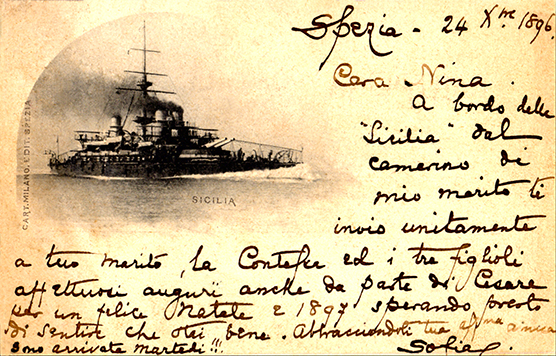 Spezia - 24 Xbre 1896.
Cara Nina.
A bordo della
"Sicilia" dal
camerino di
mio marito ti
invio unitamente
a tuo marito, la Contessa ed i tre figlioli
affettuosi auguri anche da parte di Cesare
per un felice Natale e 1897 sperando presto
di sentire che stei bene. Abbracciandoti tua affma amica
Sofia
sono arrivata martedì!!!
SICILIA
CART. MILANO, EDIT. SPEZIA